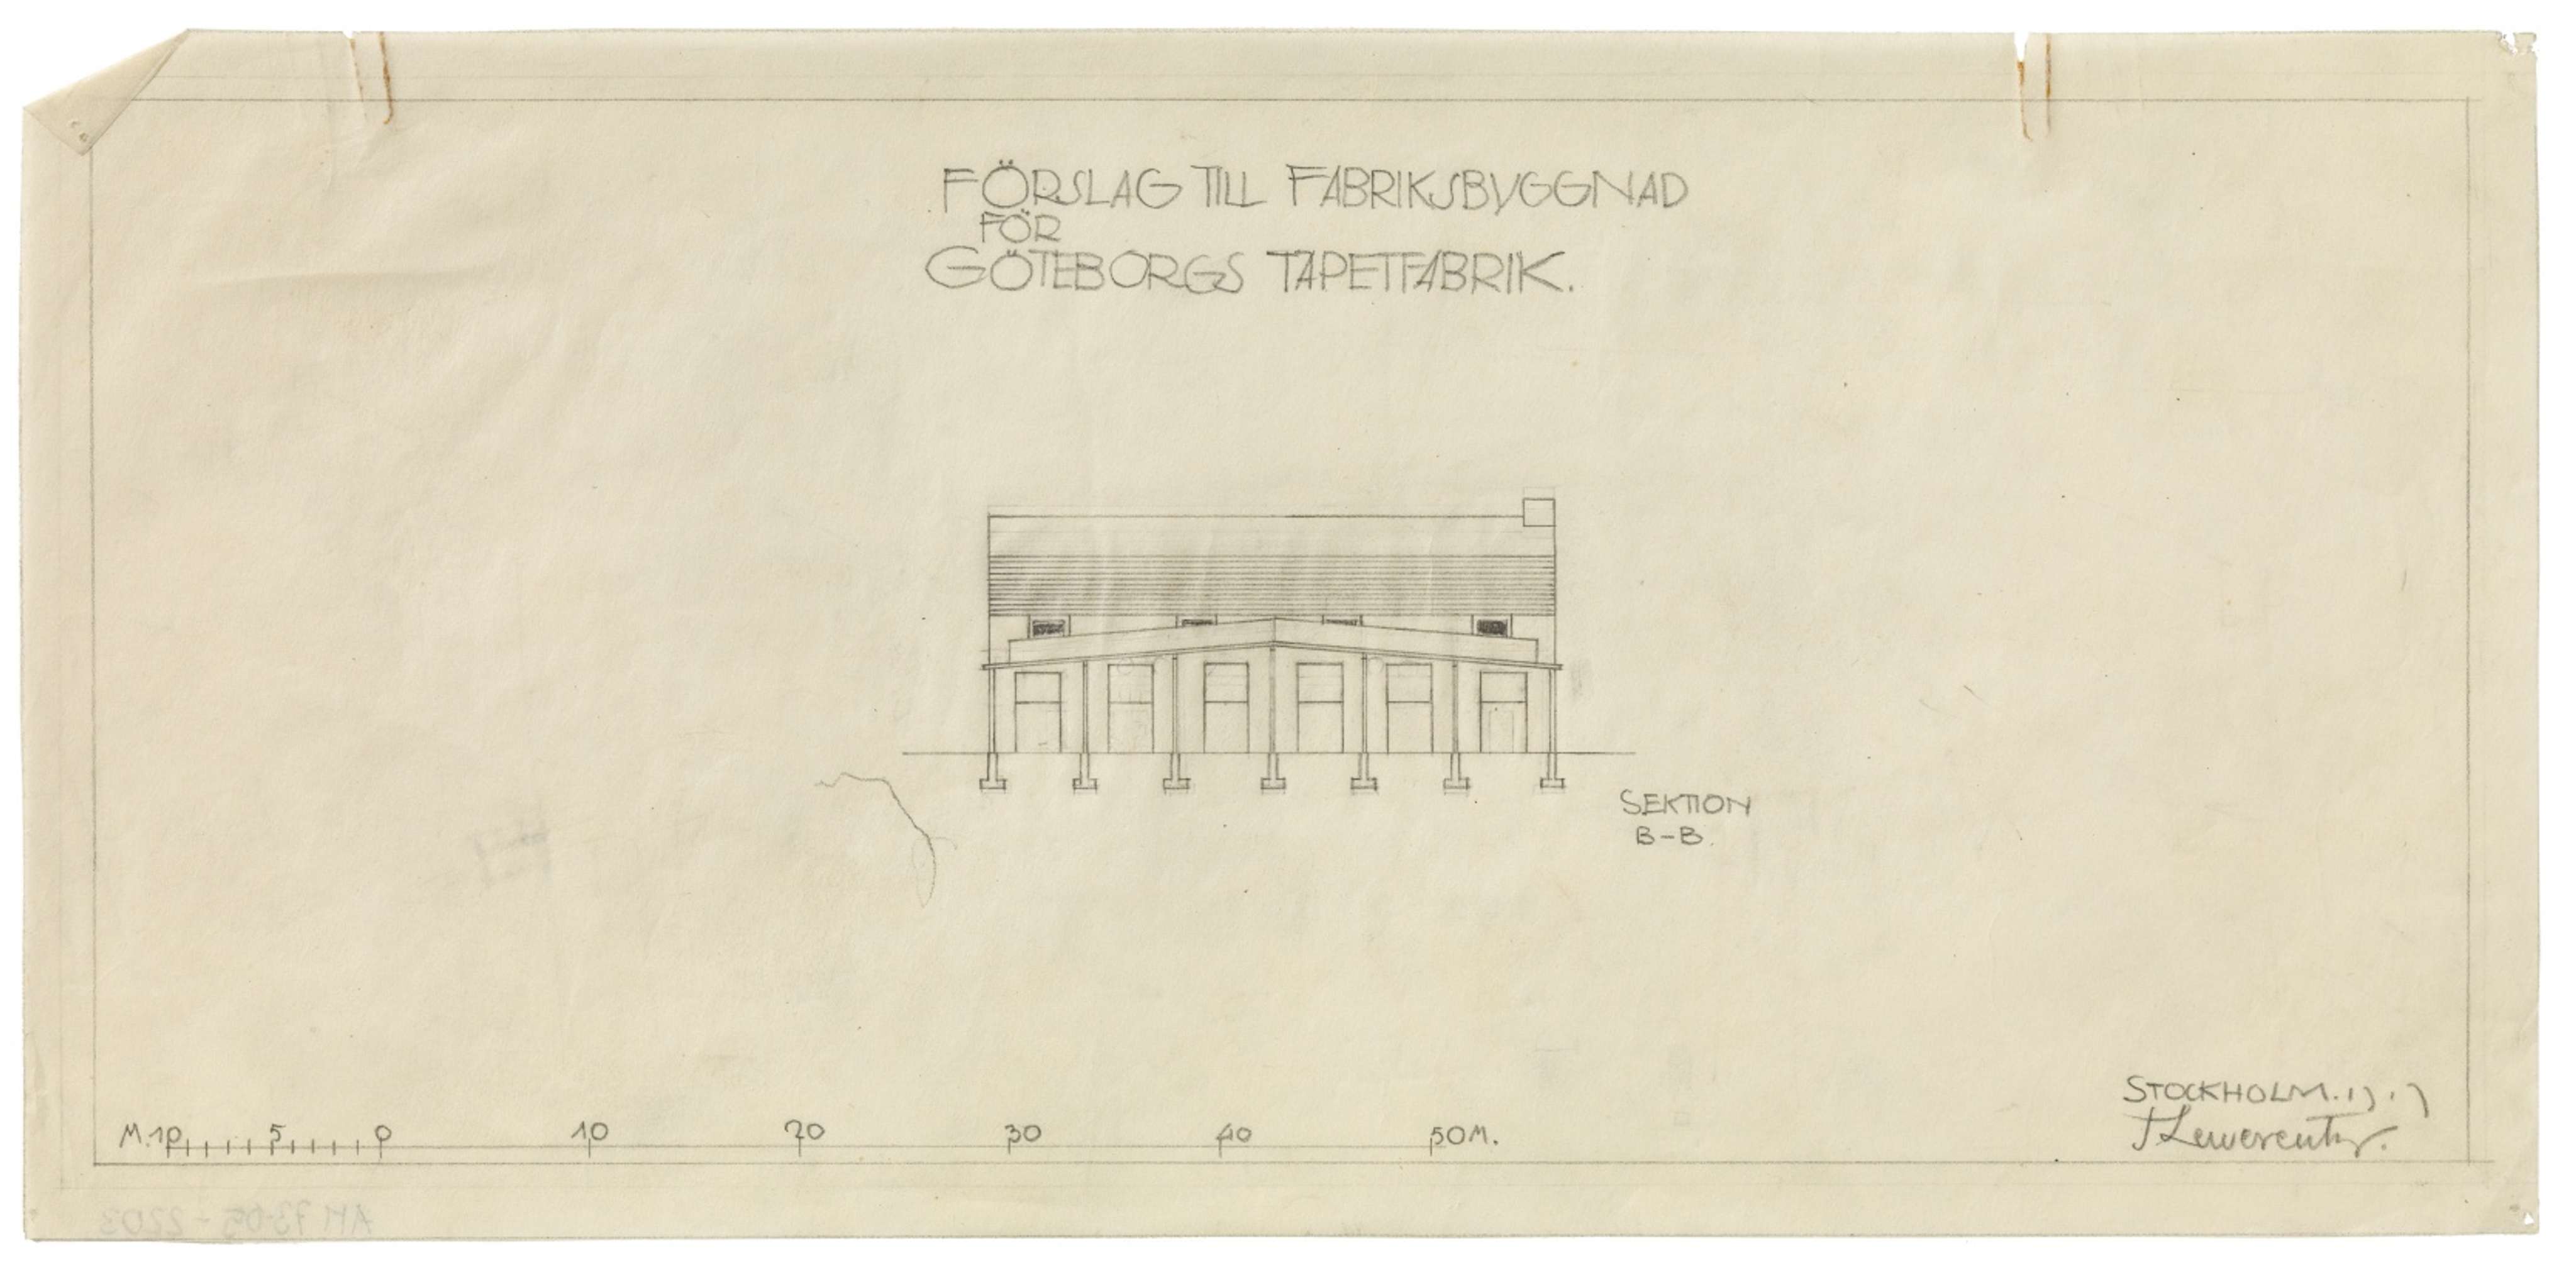 FÖRSLAG TILL FABRIKSBYGGNAD
FÖR
GÖTEBORGS TAPETFABRIK.
SEKTION
B-B.
M.10 5 0 10 20 30 40 50M.
STOCKHOLM.
Lewerentz.
AM 73-05-2203